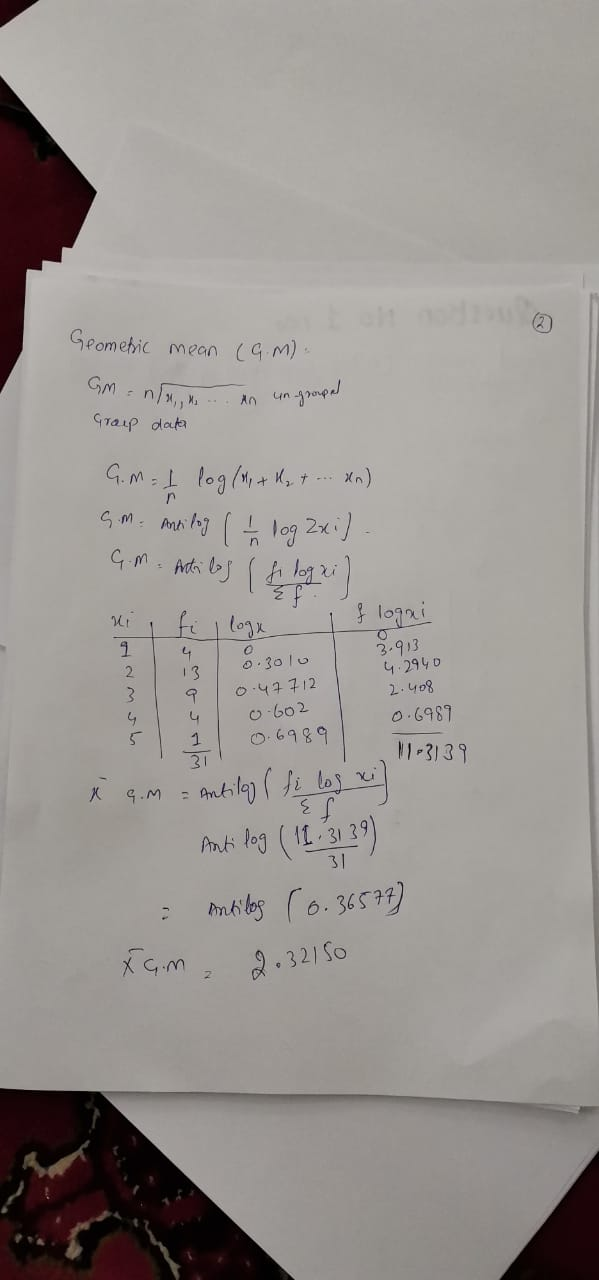 ②
Geometric mean (G.M):
GM = n√x₁, x₂ ... xn un grouped
Group data
G.M = 1/n log (x₁ + x₂ + ... xn)
G.M = Antilog [1/n log Σxi].
G.M = Antilog [fi log xi / Σf.]
xi fi logx f logxi
1 4 0 0
2 13 0.3010 3.913
3 9 0.47712 4.2940
4 4 0.602 2.408
5 1 0.6989 0.6989
31 11.3139
x̄ G.M = Antilog [fi log xi / Σf]
Anti log (11.3139 / 31)
= Antilog [0.36577]
x̄ G.M = 2.32150